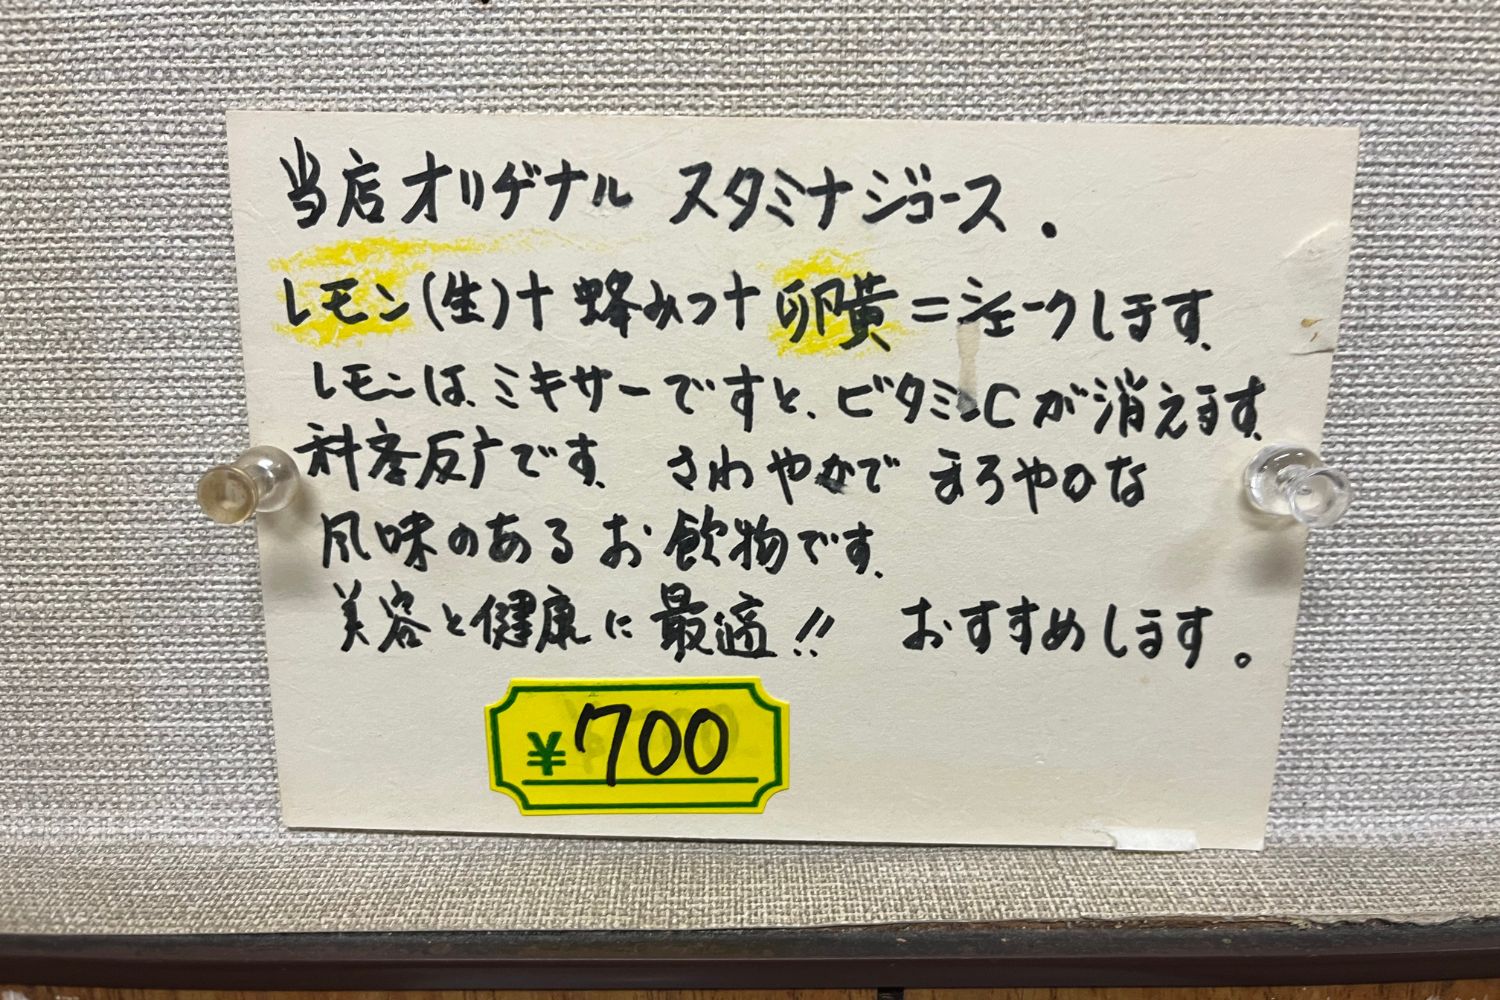 当店オリヂナル スタミナジュース.
レモン(生)+蜂みつ+卵黄=シェークします.
レモンは、ミキサーですと、ビタミンCが消えます.
科学反応です. さわやかで まろやかな
風味のあるお飲物です.
美容と健康に最適!! おすすめします。
¥700